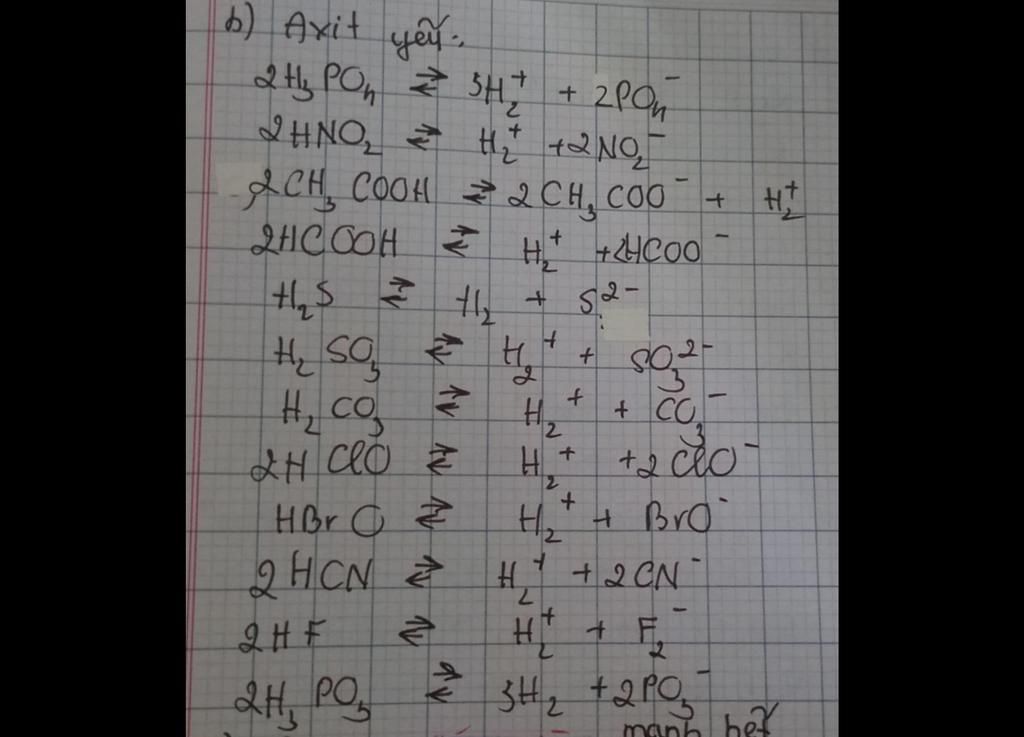 b) Axit yếu:
2H₃PO₄ ⇄ 3H₂⁺ + 2PO₄⁻
2HNO₂ ⇄ H₂⁺ + 2NO₂⁻
2CH₃COOH ⇄ 2CH₃COO⁻ + H₂⁺
2HCOOH ⇄ H₂⁺ + 2HCOO⁻
H₂S ⇄ H₂ + S²⁻
H₂SO₃ ⇄ H₂⁺ + SO₃²⁻
H₂CO₃ ⇄ H₂⁺ + CO₃⁻
2HClO ⇄ H₂⁺ + 2ClO⁻
HBrO ⇄ H₂⁺ + BrO⁻
2HCN ⇄ H₂⁺ + 2CN⁻
2HF ⇄ H₂⁺ + F₂⁻
2H₃PO₃ ⇄ 3H₂ + 2PO₃⁻